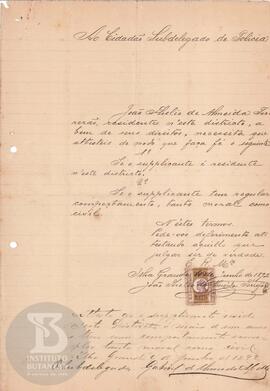 Ao Cidadão Subdelegado de Policia
João Julio de Almeida
residente n'este districto, a
bem de seus direitos, necessita que
atesteis de modo que faça fé o seguinte
1º
Se o supplicante é residente
n'este districto.
2º
Se o supplicante tem regular
comportamento, tanto moral como
civil.
N'estes termos
Pede-vos deferimento at-
testando aquillo que
julgar ser de verdade.
E. R. Mcê
Ilha Grande de Junho de 1892
João Julio de Almeida
Attesto que o supplicante reside
n'este Districto a mais de um anno
e tem comportamento
tanto moral como
civil. Ilha Grande de Junho de 1892
Subdelegado Gabriel
INSTITUTO
BUTANTAN